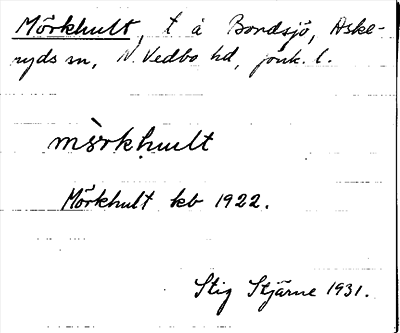 Mörkhult, t å Bordsjö, Aske-
ryds sn, N. Vedbo hd, jönk. l.
mö̀rkhụlt
Mörkhult kb 1922.
Stig Stjärne 1931.